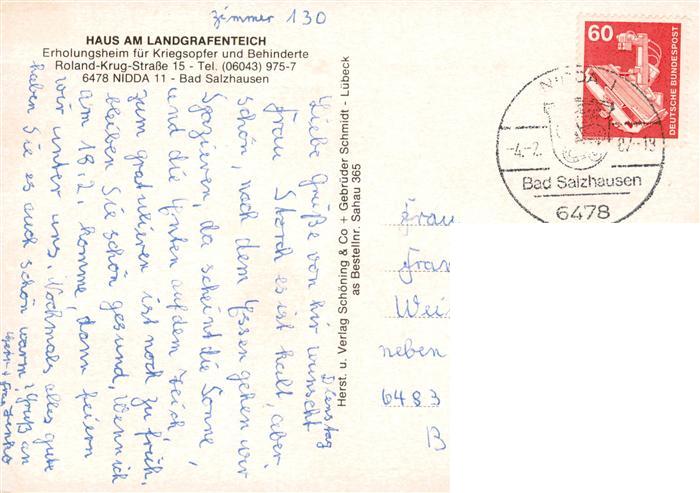 Zimmer 130
HAUS AM LANDGRAFENTEICH
Erholungsheim für Kriegsopfer und Behinderte
Roland-Krug-Straße 15 - Tel. (06043) 975-7
6478 NIDDA 11 - Bad Salzhausen
Dienstag
Liebe Grüße von hir wünscht
Frau Storch es ist kalt, aber
schön, nach dem Essen gehen wir
Spazieren, da scheint die Sonne,
und die Enten auf dem Teich,
zum gratulieren ist noch zu früh,
bleiben Sie schön gesund, Wenn ich
am 18.2. komme, dann feiern
wir unter uns. Nochmals alles gute
haben Sie es auch schön warm, Gruß an
Herrn + Frau
Herst. u. Verlag Schöning & Co + Gebrüder Schmidt - Lübeck
as Bestellnr. Sahau 365
60
DEUTSCHE BUNDESPOST
NIDDA 1
-4.-2. 87-18
Bad Salzhausen
6478
Frau
Fran
Wei
neben
6483
B